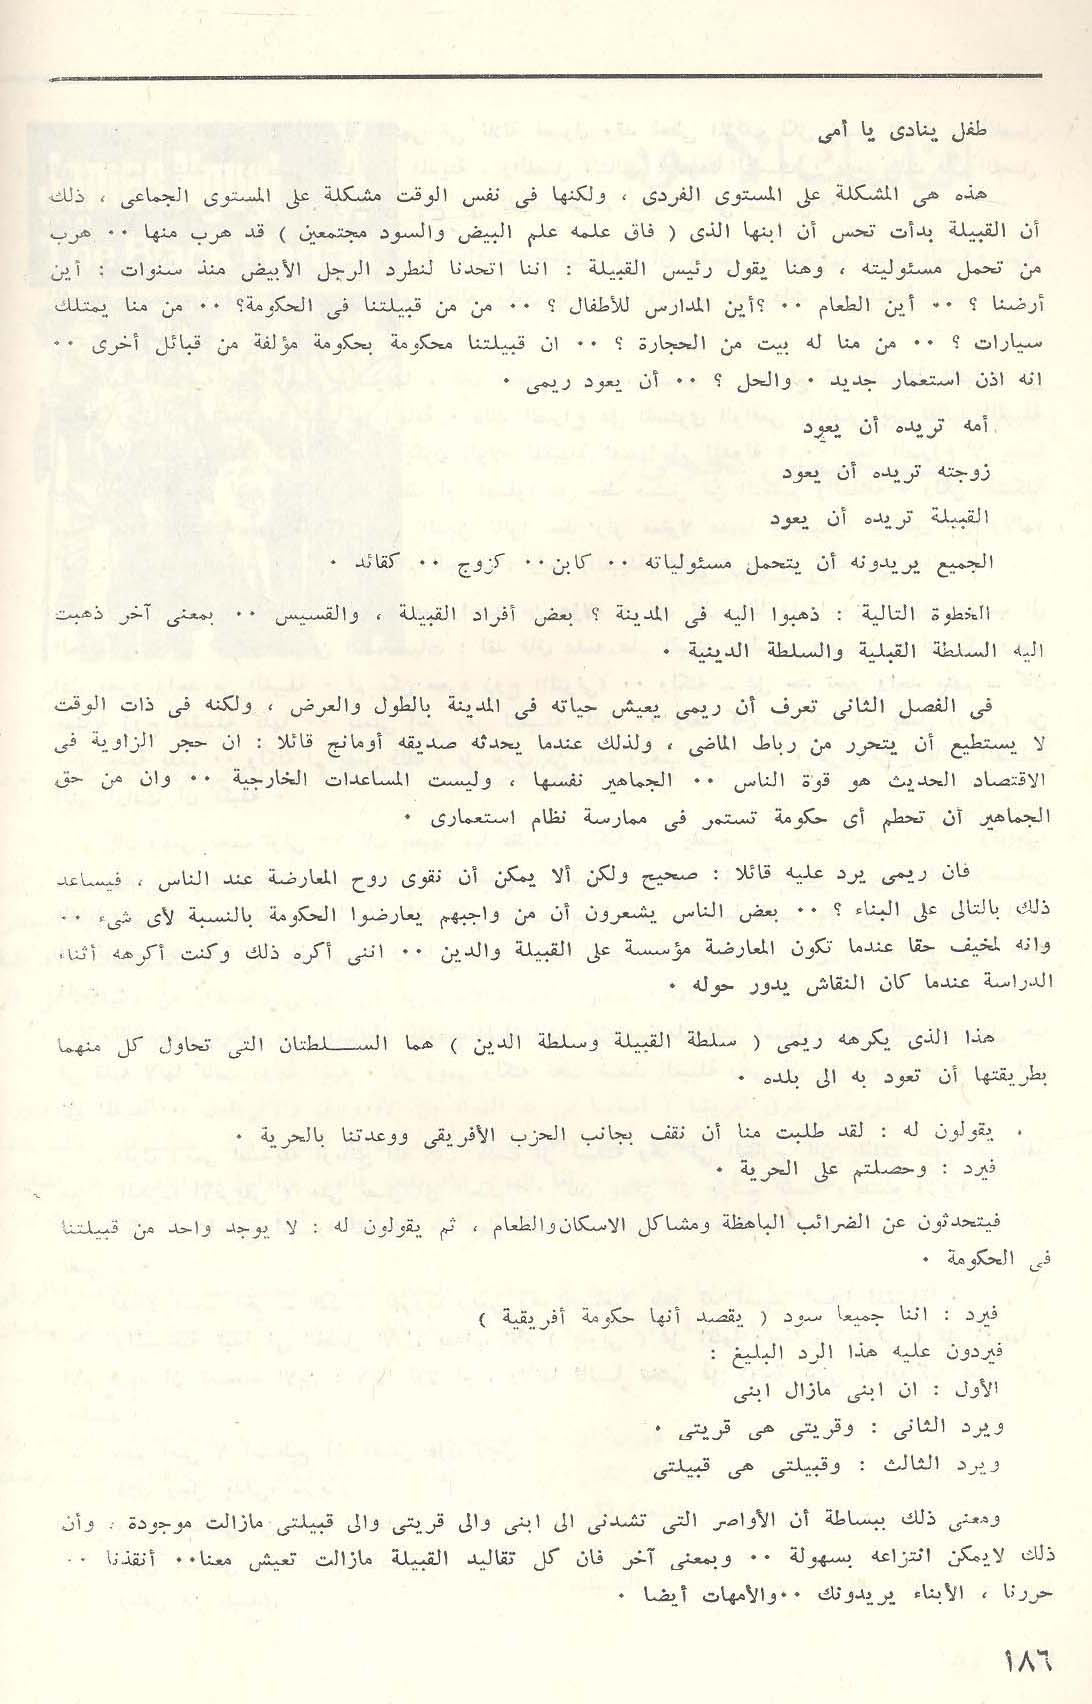 طفل ينادى يا أمى
هذه هى المشكلة على المستوى الفردى ، ولكنها فى نفس الوقت مشكلة على المستوى الجماعى ، ذلك
أن القبيلة بدأت تحس أن ابنها الذى ( فاق علمه علم البيض والسود مجتمعين ) قد هرب منها ٠٠ هرب
من تحمل مسئوليته ، وهنا يقول رئيس القبيلة : اننا اتحدنا لنطرد الرجل الأبيض منذ سنوات : أين
أرضنا ؟ ٠٠ أين الطعام ٠٠ ؟أين المدارس للأطفال ؟ ٠٠ من من قبيلتنا فى الحكومة؟ ٠٠ من منا يمتلك
سيارات ؟ ٠٠ من منا له بيت من الحجارة ؟ ٠٠ ان قبيلتنا محكومة بحكومة مؤلفة من قبائل أخرى ٠٠
انه اذن استعمار جديد ٠ والحل ؟ ٠٠ أن يعود ريمى ٠
أمه تريده أن يعود
زوجته تريده أن يعود
القبيلة تريده أن يعود
الجميع يريدونه أن يتحمل مسئولياته ٠٠ كابن٠٠ كزوج ٠٠ كقائد ٠
الخطوة التالية : ذهبوا اليه فى المدينة ؟ بعض أفراد القبيلة ، والقسيس ٠٠ بمعنى آخر ذهبت
اليه السلطة القبلية والسلطة الدينية ٠
فى الفصل الثانى تعرف أن ريمى يعيش حياته فى المدينة بالطول والعرض ، ولكنه فى ذات الوقت
لا يستطيع أن يتحرر من رباط الماضى ، ولذلك عندما يحدثه صديقه أومانج قائلا : ان حجر الزاوية فى
الاقتصاد الحديث هو قوة الناس ٠٠ الجماهير نفسها ، وليست المساعدات الخارجية ٠٠ وان من حق
الجماهير أن تحطم أى حكومة تستمر فى ممارسة نظام استعمارى ٠
فان ريمى يرد عليه قائلا : صحيح ولكن ألا يمكن أن نقوى روح المعارضة عند الناس ، فيساعد
ذلك بالتالى على البناء ؟ ٠٠ بعض الناس يشعرون أن من واجبهم يعارضوا الحكومة بالنسبة لأى شىء ٠٠
وانه لمخيف حقا عندما تكون المعارضة مؤسسة على القبيلة والدين ٠٠ اننى أكره ذلك وكنت أكرهه أثناء
الدراسة عندما كان النقاش يدور حوله ٠
هذا الذى يكرهه ريمى ( سلطة القبيلة وسلطة الدين ) هما الســـلطتان التى تحاول كل منهما
بطريقتها أن تعود به الى بلده ٠
. يقولون له : لقد طلبت منا أن نقف بجانب الحزب الأفريقى ووعدتنا بالحرية ٠
فيرد : وحصلتم على الحرية ٠
فيتحدثون عن الضرائب الباهظة ومشاكل الاسكان والطعام ، ثم يقولون له : لا يوجد واحد من قبيلتنا
فى الحكومة ٠
فيرد : اننا جميعا سود ( يقصد أنها حكومة أفريقية )
فيردون عليه هذا الرد البليغ :
الأول : ان ابنى مازال ابنى
ويرد الثانى : وقريتى هى قريتى ٠
ويرد الثالث : وقبيلتى هى قبيلتى
ومعنى ذلك ببساطة أن الأواصر التى تشدنى الى ابنى والى قريتى والى قبيلتى مازالت موجودة ، وأن
ذلك لايمكن انتزاعه بسهولة ٠٠ وبمعنى آخر فان كل تقاليد القبيلة مازالت تعيش معنا٠٠ أنقذنا ٠٠
حررنا ، الأبناء يريدونك ٠٠والأمهات أيضا ٠
١٨٦